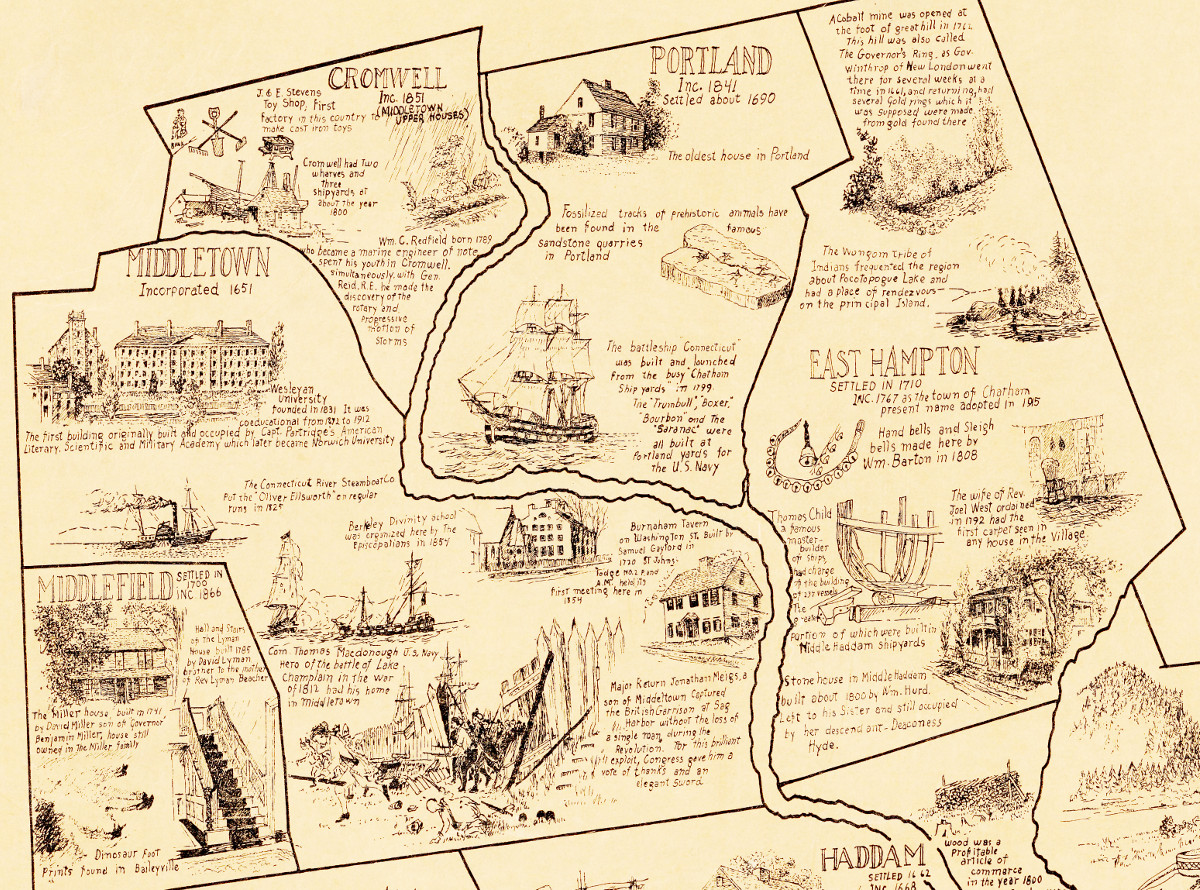 CROMWELL
Inc. 1851
(MIDDLETOWN
UPPER HOUSES)
J. & E. Stevens
Toy Shop, First
factory in this country to
make cast iron toys
Cromwell had Two
wharves and
Three
shipyards at
about the year
1800
Wm. C. Redfield born 1789
who became a marine engineer of note
spent his youth in Cromwell.
simultaneously with Gen.
Reid, R.E. he made the
discovery of the
rotary and
progressive
motion of
storms
PORTLAND
Inc. 1841
Settled about 1690
The oldest house in Portland
Fossilized tracks of prehistoric animals have
been found in the famous
sandstone quarries
in Portland
The battleship Connecticut"
was built and launched
from the busy "Chatham
Ship yards" in 1799
The "Trumbull", Boxer,"
"Bourbon" and The
"Saranac" were
all built at
Portland yards for
the U.S. Navy
A Cobalt mine was opened at
the foot of great hill in 1762.
This hill was also called
The Governor's Ring, as Gov.
Winthrop of New London went
there for several weeks at a
time in 1661, and returning, had
several Gold rings which it
was supposed were made
from gold found there
The Wongom tribe of
Indians frequented the region
about Pocotopogue Lake and
had a place of rendezvous
on the principal Island.
EAST HAMPTON
SETTLED IN 1710
INC. 1767 as the town of Chatham
present name adopted in 1915
Hand bells and Sleigh
bells made here by
Wm. Barton in 1808
The wife of Rev.
Joel West ordained
in 1792 had the
first carpet seen in
any house in the Village
Thomas Child
a famous
master-
builder
of ships
had charge
of the building
of 237 vessels
the
portion of which were built in
Middle Haddam Shipyards
Stone house in Middle Haddam
built about 1800 by Wm. Hurd.
Left to his Sister and still occupied
by her descendant - Deaconess
Hyde.
MIDDLETOWN
Incorporated 1651
Wesleyan
University
founded in 1831 It was
coeducational from 1872 to 1912
The first building originally built and occupied by Capt. Partridge's American
Literary, Scientific and Military Academy which later became Norwich University
The Connecticut River Steamboat Co
Put the "Oliver Ellsworth" on regular
runs in 1825
Berkley Divinity school
was organized here by the
Episcopalians in 1854
Burnaham Tavern
on Washington St. Built by
Samuel Gaylord in
1720 St Johns
lodge No. 2 F. and
A.M. held its
first meeting here in
1854
Com. Thomas Macdonough U.S. Navy
Hero of the battle of Lake
Champlain in the war
of 1812 had his home
in Middletown
Major Return Jonathan Meigs, a
son of Middletown captured
the British Garrison at Sag
Harbor without the loss of
a single man, during the
Revolution. For this brilliant
exploit, Congress gave him a
vote of thanks and an
elegant sword
MIDDLEFIELD
SETTLED IN
1700
INC 1866
Hall and Stairs
of the Lyman
house built 1785
by David Lyman
brother to the mother
of Rev Lyman Beecher
The Miller house, built in 1741
by David Miller son of Governor
Benjamin Miller, house still
owned in the Miller family
Dinosaur Foot
Prints found in Baileyville
HADDAM
SETTLED 1662
INC. 1668
Wood was a
Profitable
article of
commerce
in the year 1800